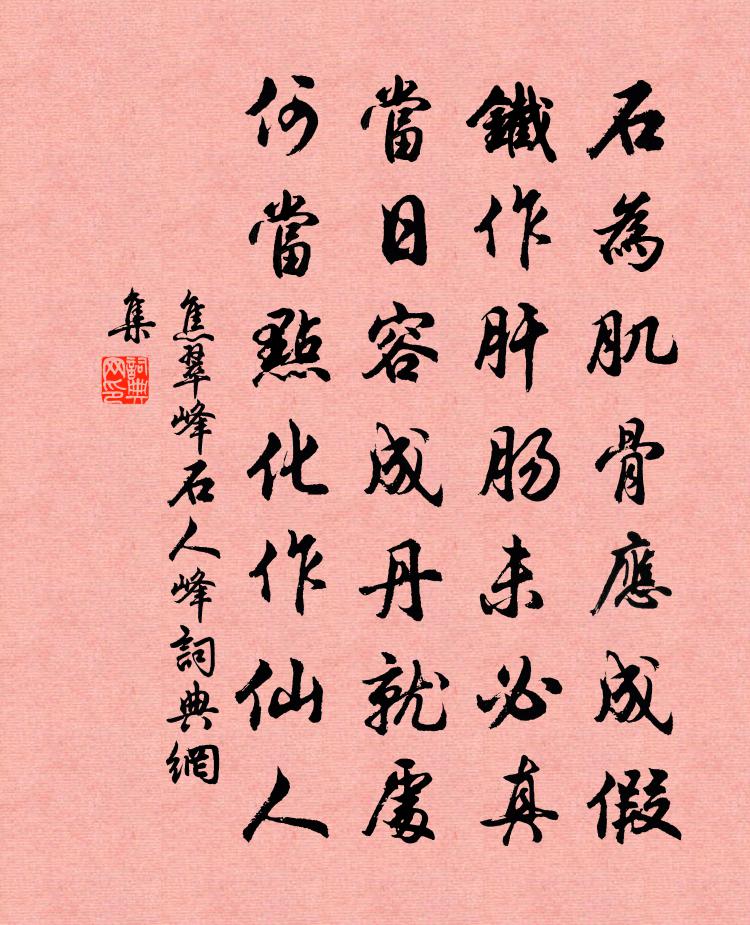 石為肌骨應成假
鐵作肝腸未必真
當日容成丹就處
何當點化作仙人
焦翠峰石人峰詞典網
集
詞典
网印